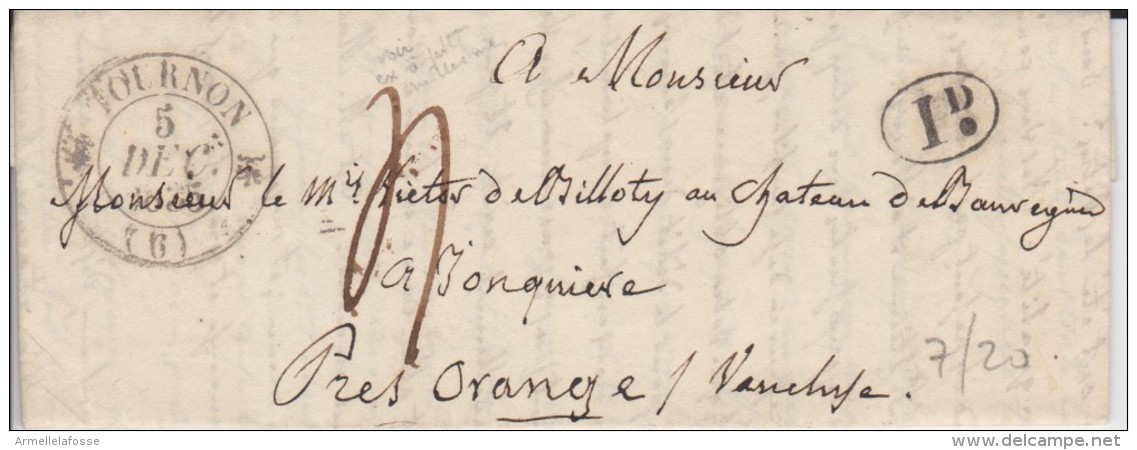 voir
TOURNON
5
DEC.
(6)
A Monsieur
1D.
Monsieur le Mis Victor de Billoty au chateau de Beauregard
a Jonquiere
Près Orange / Vaucluse.
7/20
Armellelafosse
www.delcampe.net